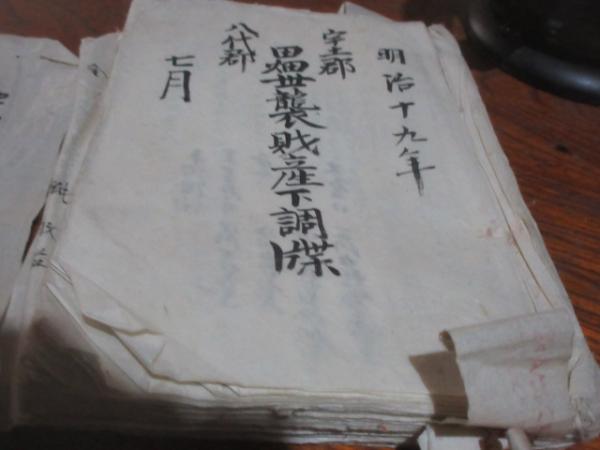 明治十九年
宇土郡
八代郡
田畑世襲財産下調牒
七月